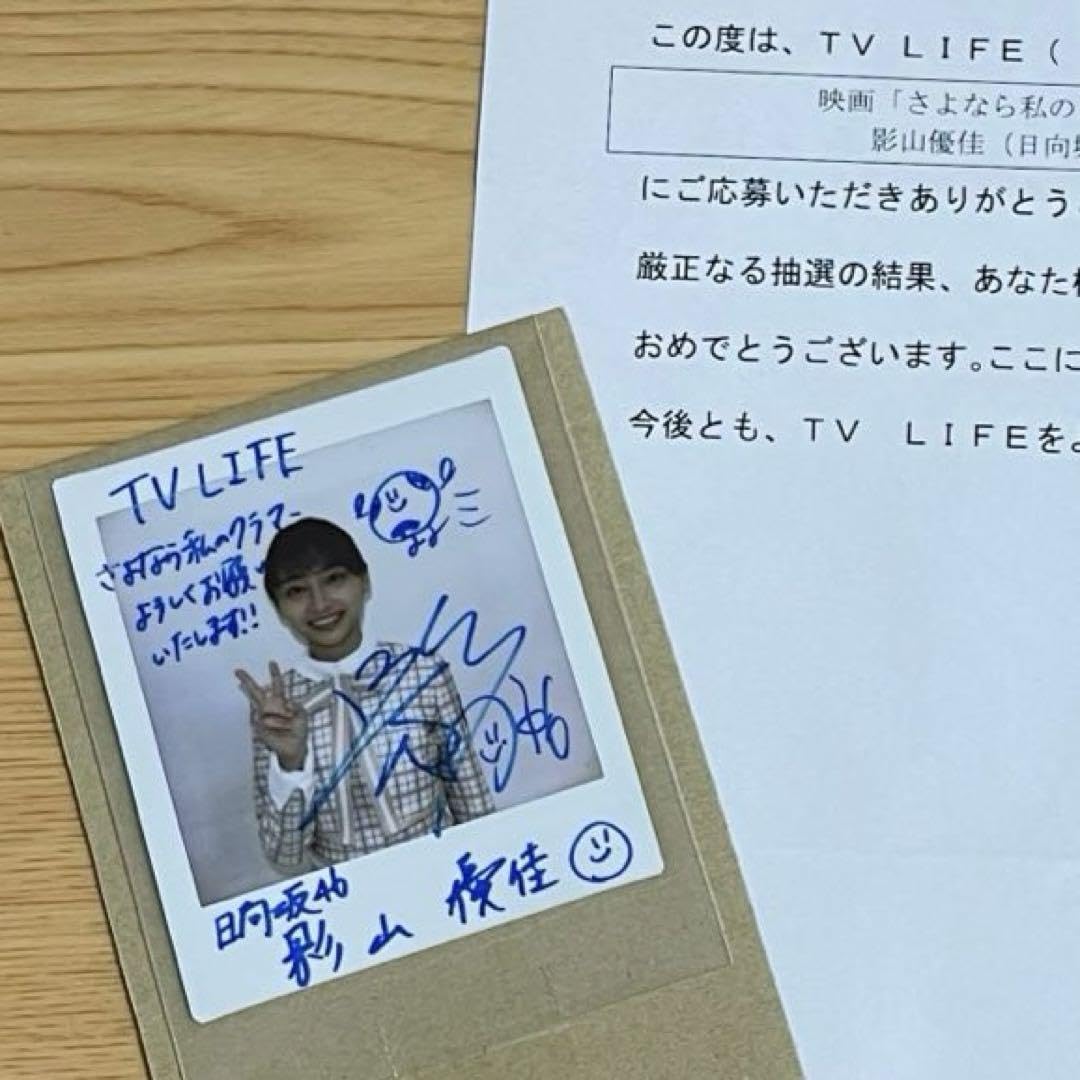 この度は、TV LIFE（
映画「さよなら私の
影山優佳（日向
にご応募いただきありがとう
厳正なる抽選の結果、あなた
おめでとうございます。ここに
今後とも、TV LIFEをよ
TV LIFE
さよなら私のクラマー
よろしくお願い
いたします!!
46
日向坂46
影山 優佳